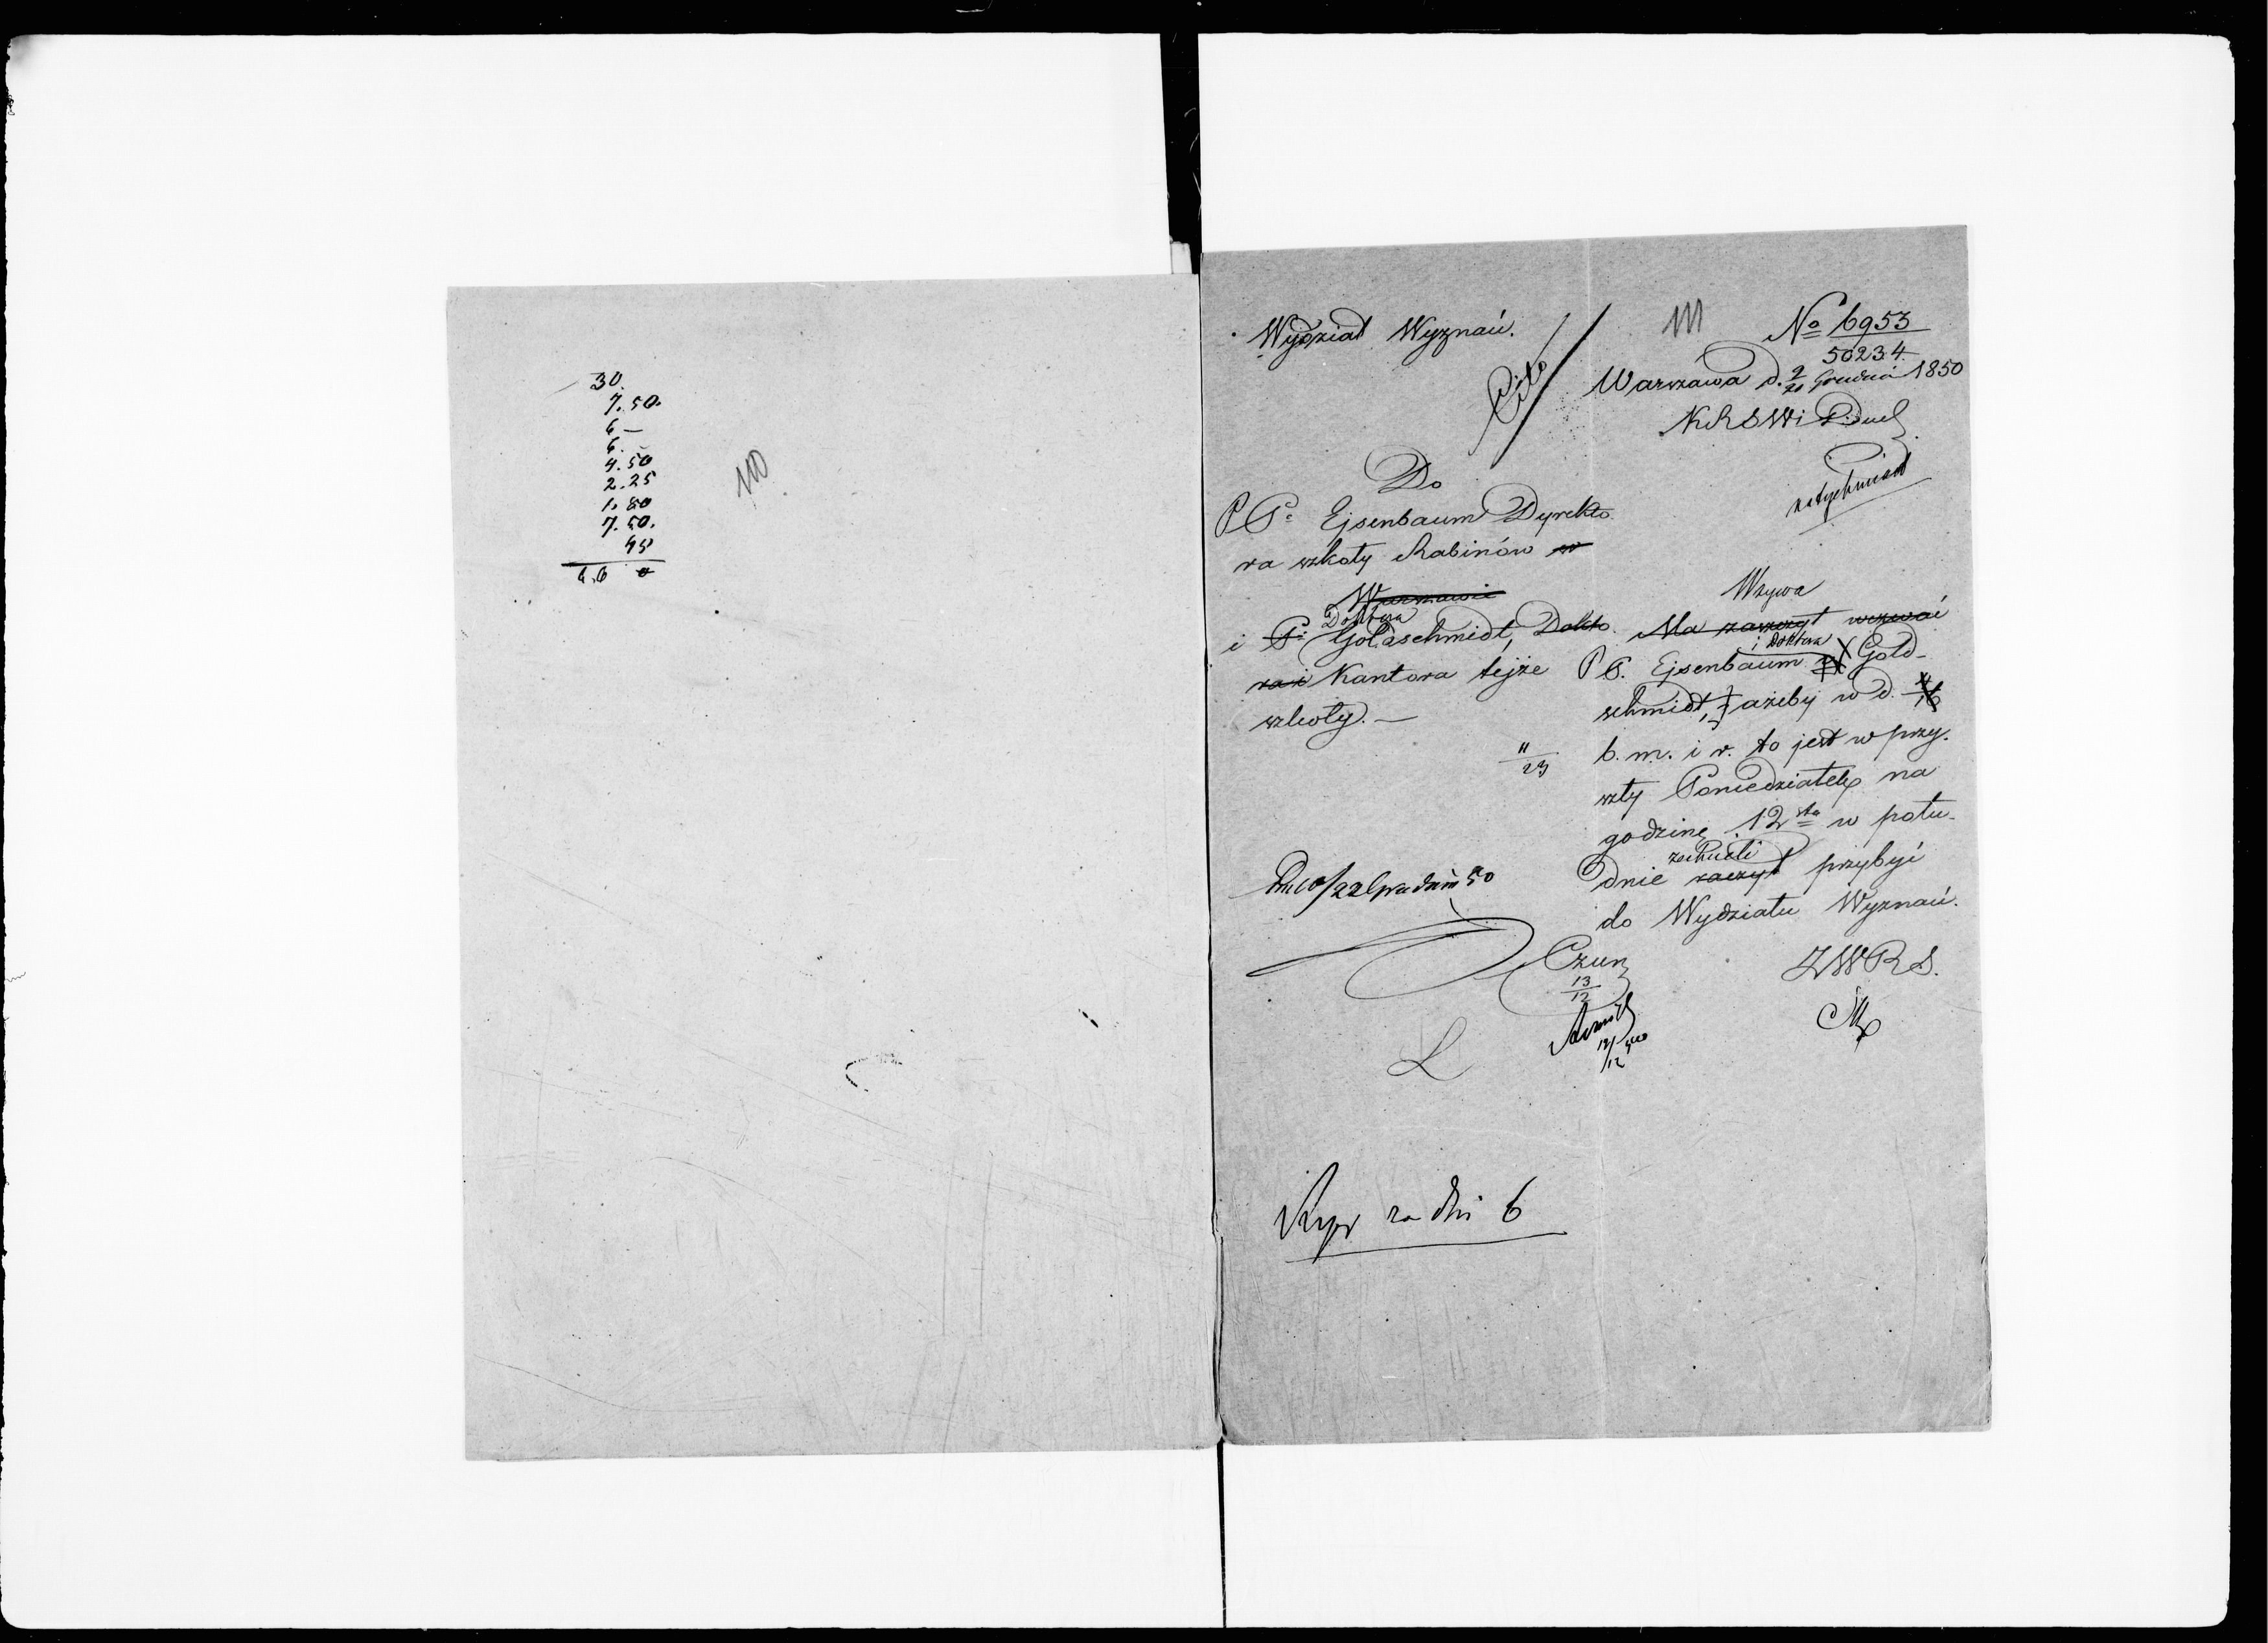 30.
7.50.
6 —
6. –
4.50
2.25
1.80
7.50.
45
6.6 0
110
Wydział Wyznań.
Cito
111
№ 6953
50234.
Warszawa d. 9/21 Grudnia 1850
KRSWiDuch
natychmiast
Do
PP: Ejsenbaum Dyrekto
ra szkoły Rabinów w
Warszawie
Doktora
i P: Goldschmidt, Dokto
ra i Kantora tejże
szkoły. —
Wzywa
Ma zaszczyt wezwać
i Doktora
PP. Ejsenbaum Gold-
schmidt, ażeby w d. 4/16
11/23
b. m. i r. to jest w przy.
szły Poniedziałek na
godzinę 12tą w połu-
zechcieli
dnie raczył przybyć
do Wydziału Wyznań.
10/22 Grudnia 50
ZWRS.
13/12
L
za dni 6